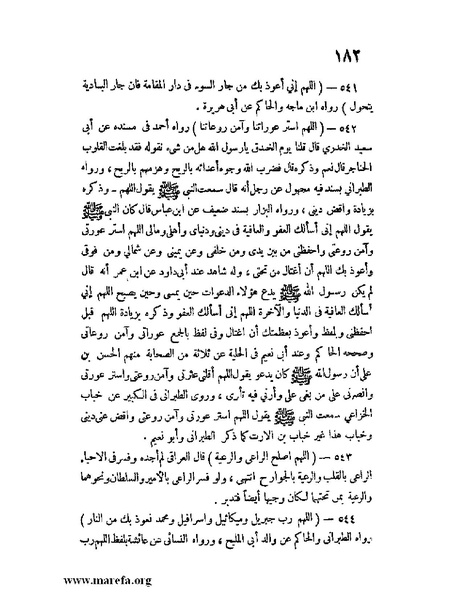 ١٨٢
٥٤١ — ( اللهم إني أعوذ بك من جار السوء فى دار المقامة فان جار البادية
يتحول ) رواه ابن ماجه والحاكم عن أبي هريرة .
٥٤٢ — ( اللهم استر عوراتنا وآمن روعاتنا ) رواه أحمد فى مسنده عن أبي
سعيد الخدري قال قلنا يوم الخندق يارسول الله هل من شيء نقوله فقد بلغت القلوب
الحناجر قال نعم وذكره قال فضرب الله وجوه أعدائه بالريح وهزمهم بالريح ، ورواه
الطبراني بسند فيه مجهول عن رجل أنه قال سمعت النبي ﷺ يقول اللهم — وذكره
بزيادة واقض ديني ، ورواه البزار بسند ضعيف عن ابن عباس قال كان النبي ﷺ
يقول اللهم إني أسألك العفو والعافية فى دينى ودنياى وأهلى ومالى اللهم استر عورتى
وآمن روعتى واحفظنى من بين يدى ومن خلفى وعن يمينى وعن شمالي ومن فوقى
وأعوذ بك اللهم أن أغتال من تحتى ، وله شاهد عند أبى داود عن ابن عمر أنه قال
لم يكن رسول الله ﷺ يدع هؤلاء الدعوات حين يمسى وحين يصبح اللهم إني
أسألك العافية فى الدنيا والآخرة اللهم إنى أسألك العفو وذكره بزيادة اللهم قبل
احفظنى وبلفظ وأعوذ بعظمتك أن اغتال وفى لفظ بالجمع عوراتى وآمن روعاتى
وصححه الحاكم وعند أبى نعيم فى الحلية عن ثلاثة من الصحابة منهم الحسن بن
على أن رسول الله ﷺ كان يدعو يقول اللهم أقلنى عثرتى وآمن روعتى واستر عورتى
وانصرنى على من بغى على وأرنى فيه ثأرى ، وروى الطبرانى فى الكبير عن خباب
الخزاعى سمعت النبى ﷺ يقول اللهم استر عورتى وآمن روعتى واقض عنى دينى
وخباب هذا غير خباب بن الارت كما ذكر الطبرانى وأبو نعيم .
٥٤٣ — ( اللهم اصلح الراعى والرعية ) قال العراقى لم أجده وفسر فى الاحياء
الراعى بالقلب والرعية بالجوارح انتهى ، ولو فسر الراعى بالأمير والسلطان ونحوهما
والرعية بمن تحتهما لكان وجيها أيضاً فتدبر .
٥٤٤ — ( اللهم رب جبريل وميكائيل واسرافيل ومحمد نعوذ بك من النار )
رواه الطبرانى والحاكم عن والد أبى المليح ، ورواه النسائى عن عائشة بلفظ اللهم رب
www.marefa.org